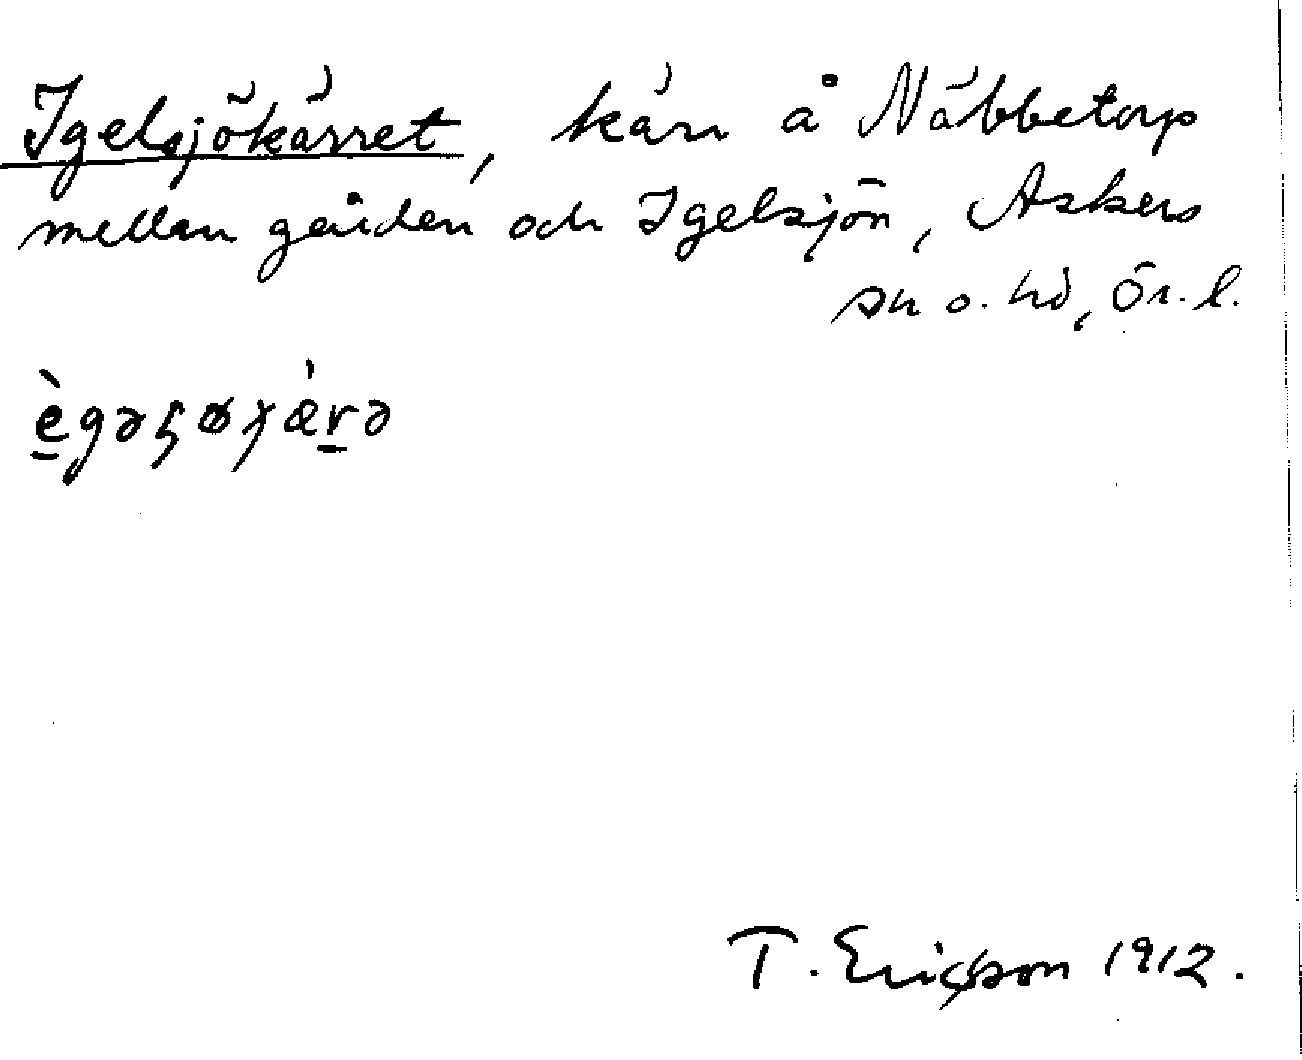 Igelsjökärret, kärr å Näbbetorp
mellan gården och Igelsjön, Askers
sn o. hd, Ör. l.
T. Ericsson 1912.